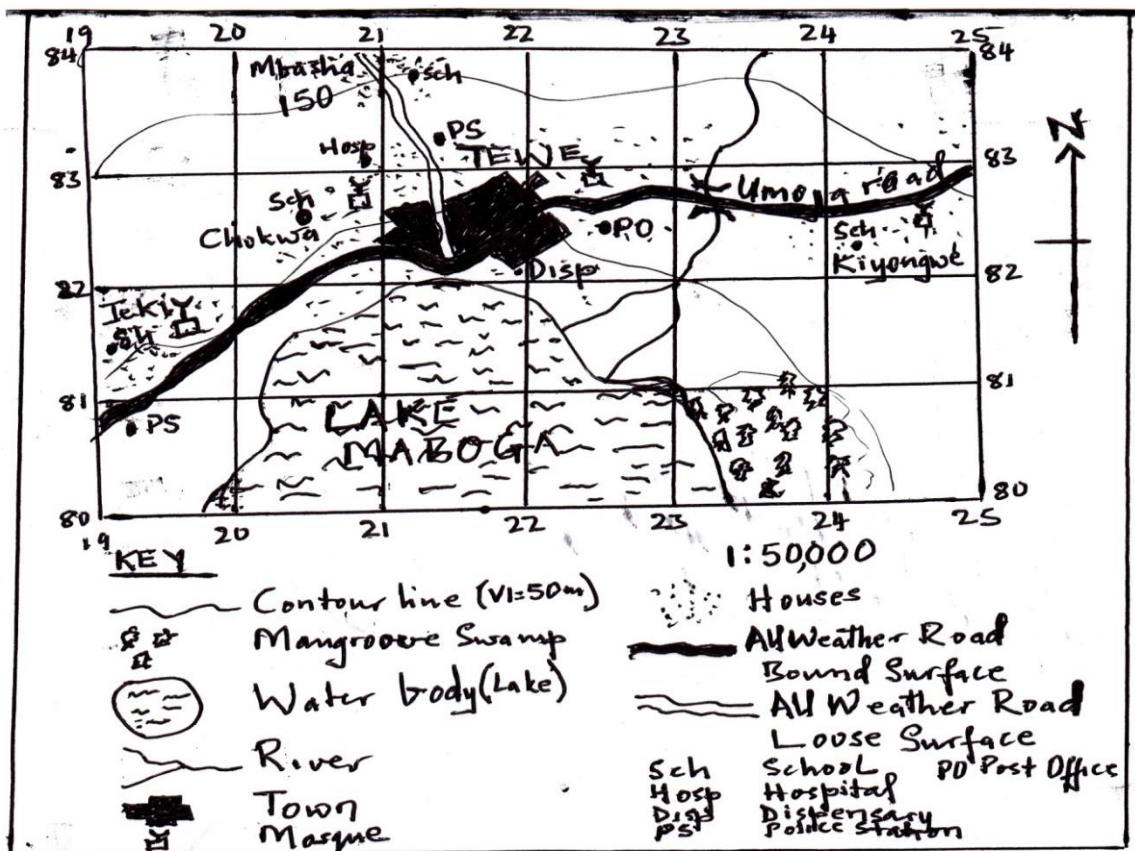 19 20 21 22 23 24 25
84 84
Mbasha
Sch
150
PS
Hosp
TEWE
83 83
Umoja road
Sch
Chokwa
PO
Sch
Kiyongwe
Disp
82 82
Tekiy
Sh
81 81
PS
LAKE
MABOGA
80 80
19 20 21 22 23 24 25
KEY
1:50,000
Contour line (VI=50m)
Mangroove Swamp
Water body (Lake)
River
Town
Mosque
Houses
All Weather Road
Bound Surface
All Weather Road
Loose Surface
Sch School PO Post Office
Hosp Hospital
Disp Dispensary
PS Police Station